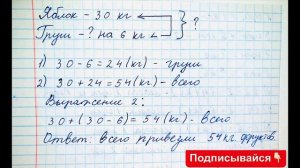 Яблок - 30 кг
Груш - ? на 6 кг
?
1) 30 - 6 = 24 (кг) - груш
2) 30 + 24 = 54 (кг) - всего
Выражение 2:
30 + (30 - 6) = 54 (кг) - всего
Ответ: всего привезли 54 кг. фруктов.
Подписывайся